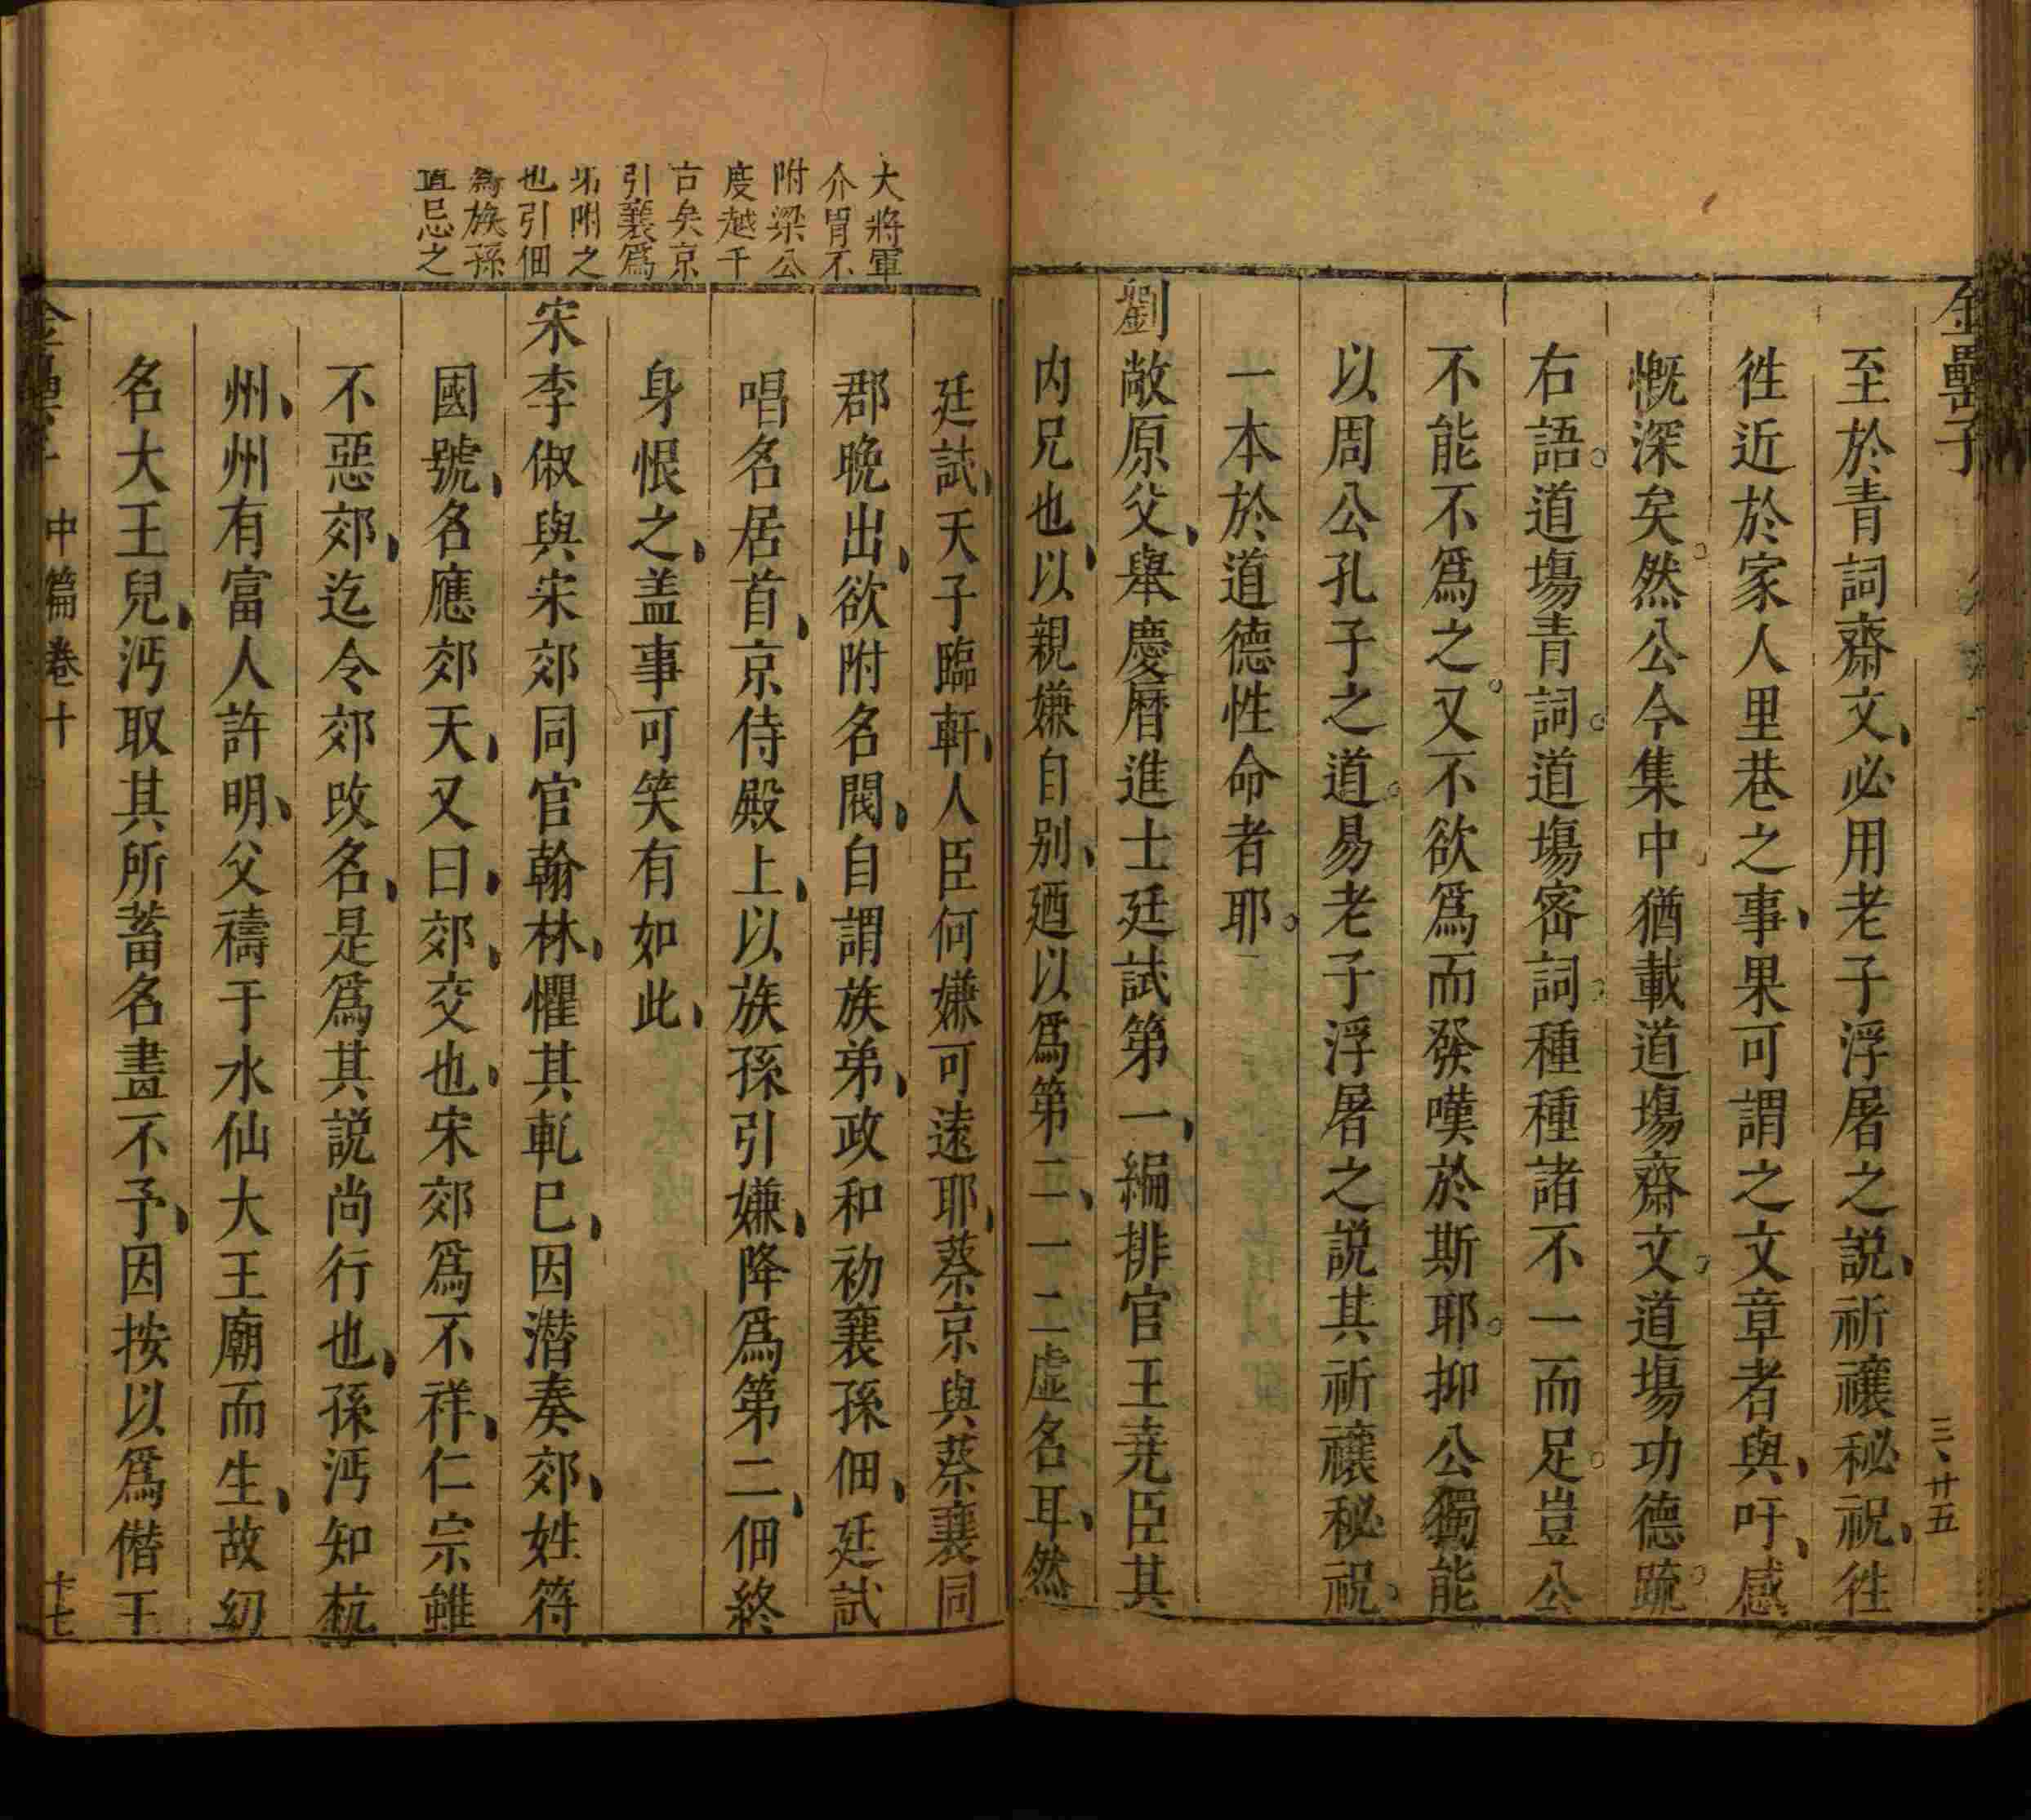 金罍子
三、廿五
至於青詞齋文、必用老子浮屠之說、祈禳秘祝、徃
徃近於家人里巷之事、果可謂之文章者與、吁、感
慨深矣。然公今集中猶載道塲齋文、道塲功德䟽。
右語。道塲青詞。道塲宻詞。種種諸不一而足。豈公
不能不爲之。又不欲爲而發嘆於斯耶。抑公獨能
以周公孔子之道。易老子浮屠之說其祈禳秘祝、
一本於道德性命者耶。
劉敞原父、舉慶曆進士廷試第一、編排官王堯臣其
内兄也、以親嫌自别、廼以爲第二、一二虛名耳、然
大將軍
介胄不
附梁公
度越千
古矣京
引襄爲
坧附之
也引佃
爲族孫
直忌之
廷試、天子臨軒、人臣何嫌可遠耶、蔡京與蔡襄同
郡晚出、欲附名閥、自謂族弟、政和初襄孫佃、廷試
唱名居首、京侍殿上、以族孫引嫌、降爲第二、佃終
身恨之、盖事可笑有如此、
宋李俶與宋郊同官翰林、懼其軋已、因潜奏郊、姓符
國號、名應郊天、又曰、郊、交也、宋郊爲不祥、仁宗雖
不惡郊、迄令郊改名、是爲其説尚行也、孫沔知杭
州、州有富人許明、父禱于水仙大王廟而生、故㓜
名大王兒、沔取其所蓄名畫不予、因按以爲僣王
中篇卷十
十七